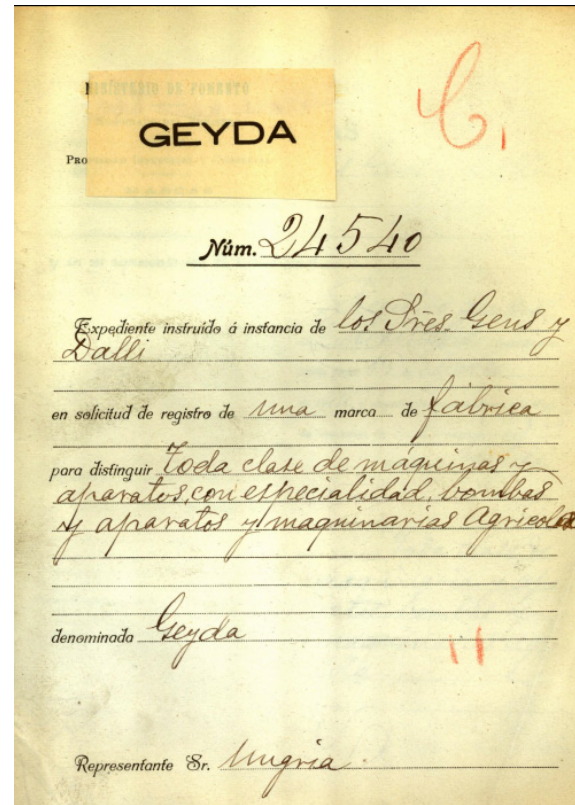 MINISTERIO DE FOMENTO
GEYDA
PRO
C.
Núm. 24540
Expediente instruido á instancia de los Sres. Gens y
Dalli
en solicitud de registro de una marca de fábrica
para distinguir toda clase de máquinas y
aparatos, con especialidad, bombas
y aparatos y maquinarias Agricolas
denominada Geyda
11
Representante Sr. Ungria.